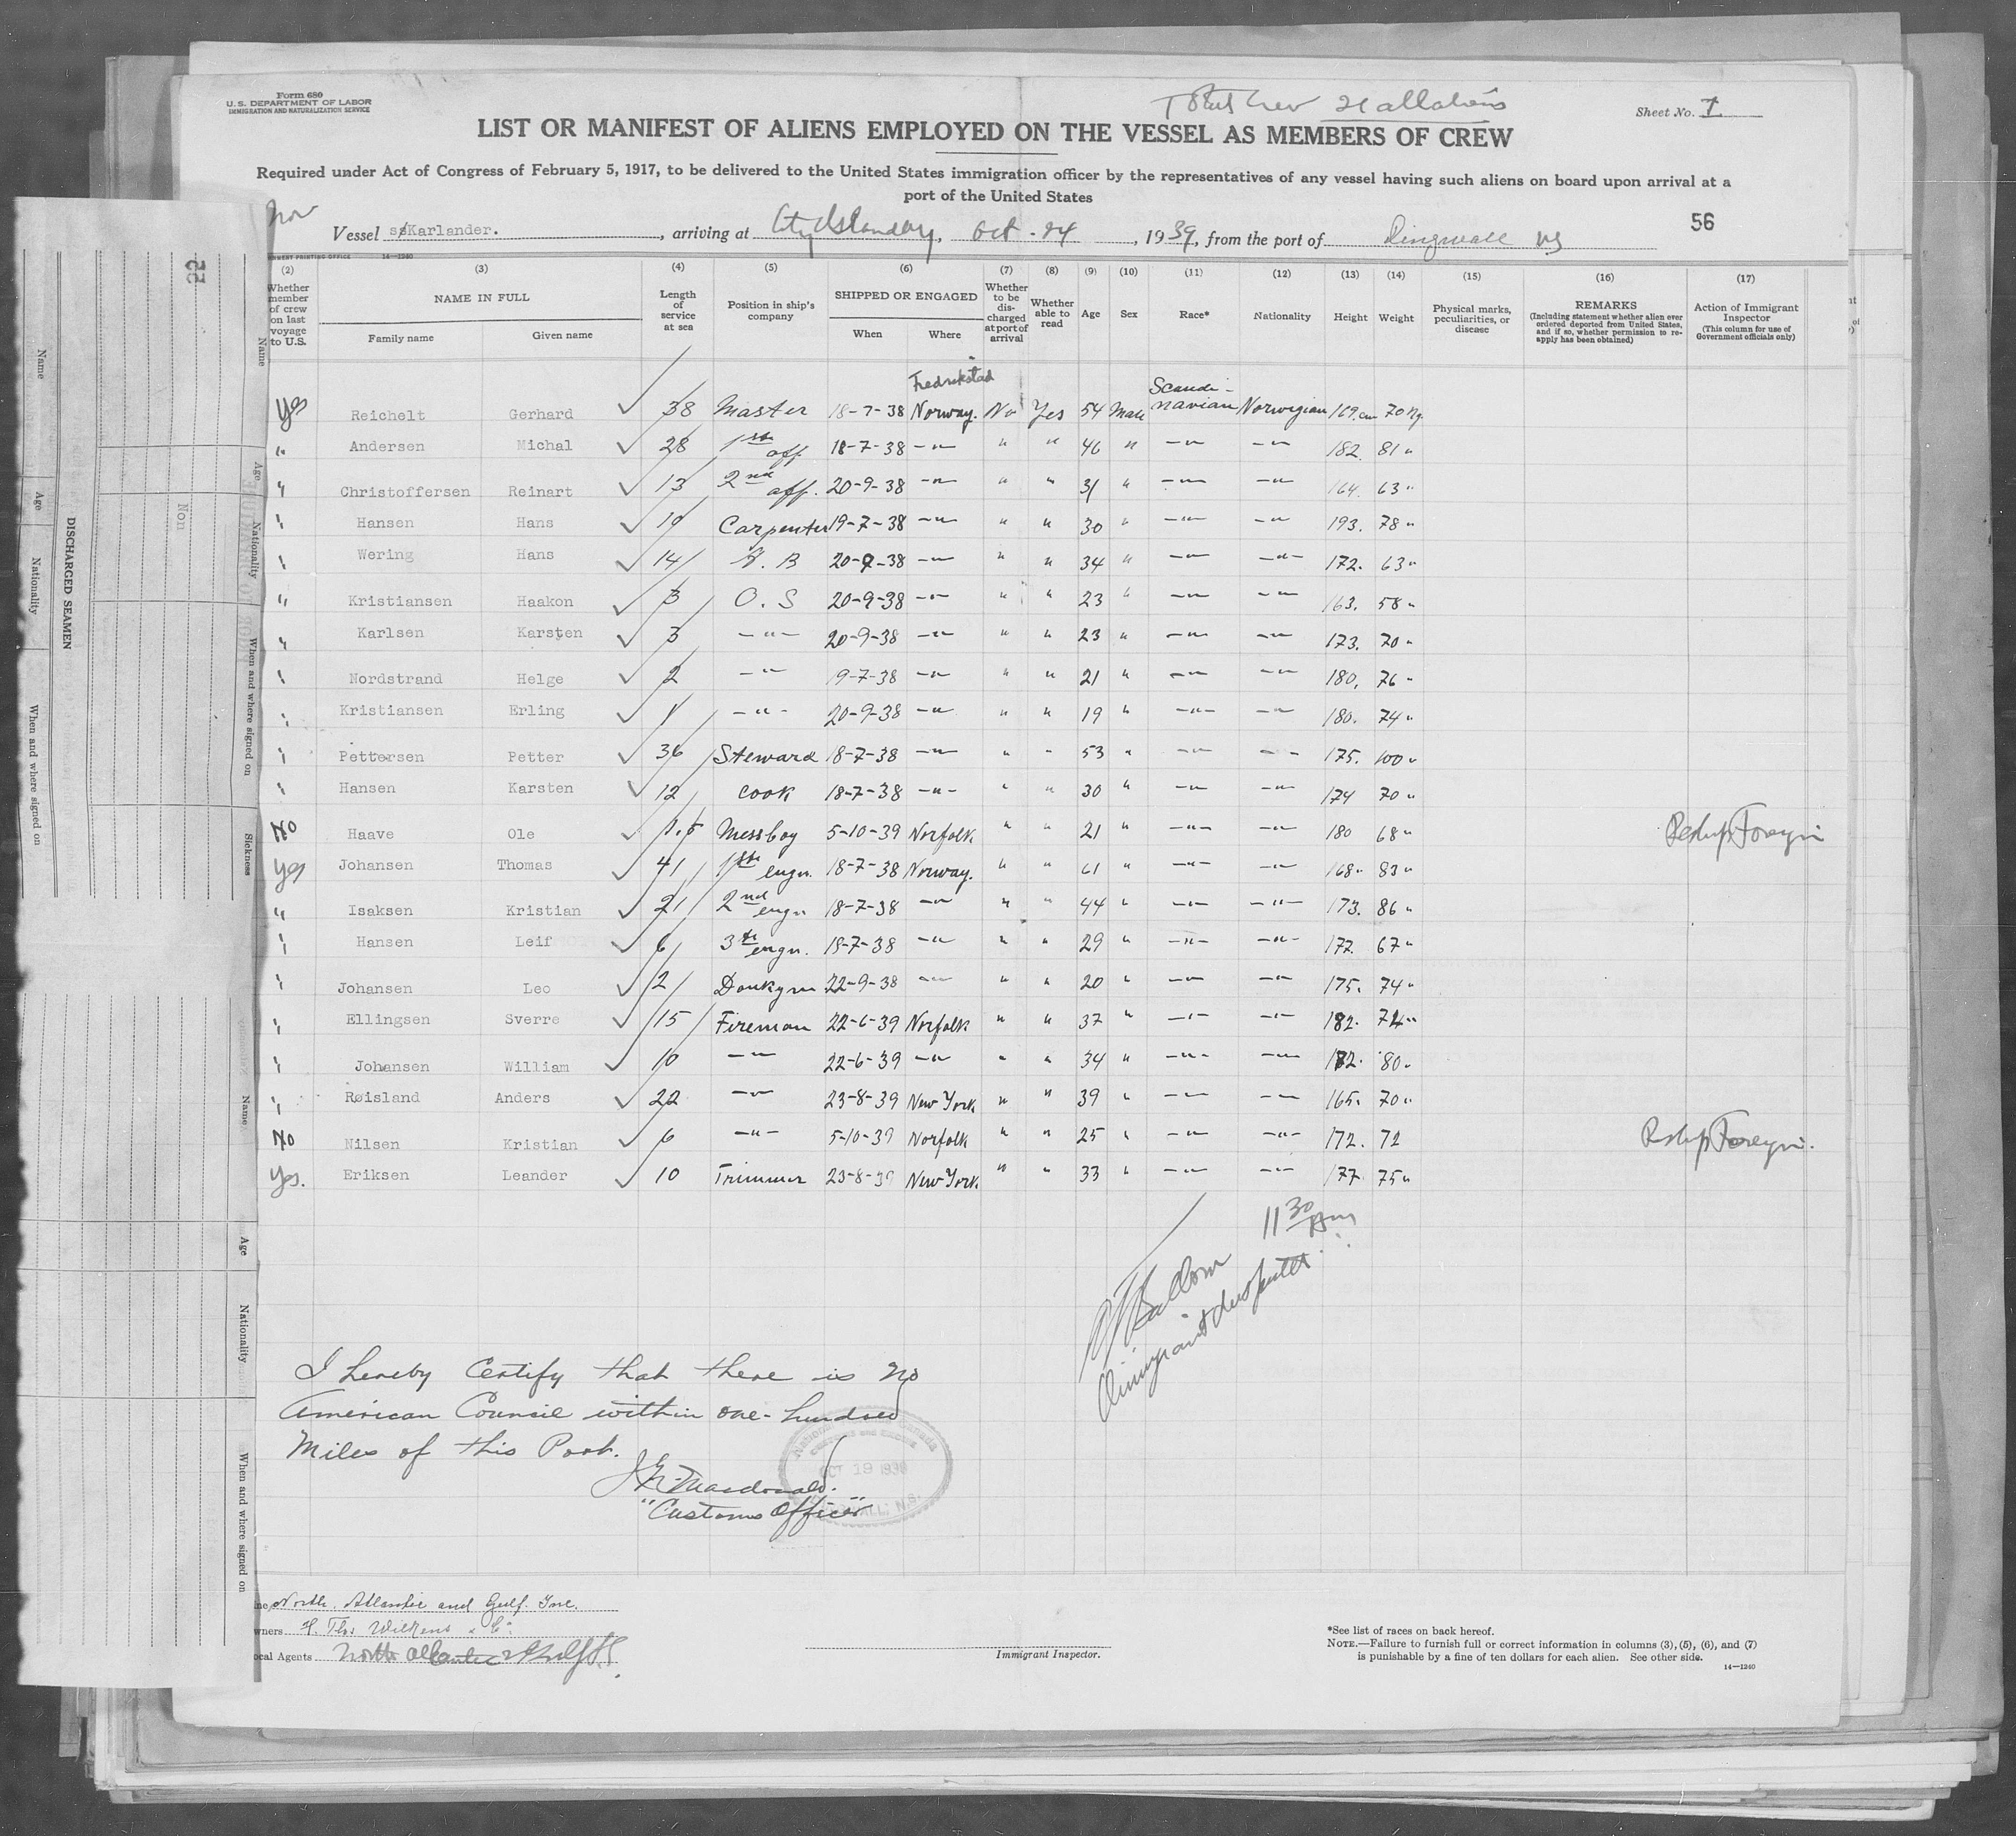 Form 680
U. S. DEPARTMENT OF LABOR
IMMIGRATION AND NATURALIZATION SERVICE
Sheet No. 1
LIST OR MANIFEST OF ALIENS EMPLOYED ON THE VESSEL AS MEMBERS OF CREW
Required under Act of Congress of February 5, 1917, to be delivered to the United States immigration officer by the representatives of any vessel having such aliens on board upon arrival at a
port of the United States
56
Nor
Vessel ss Karlander. , arriving at City Island, Oct. 24, 1939, from the port of Dingwall NS
14—1240
(2) (3) (4) (5) (6) (7) (8) (9) (10) (11) (12) (13) (14) (15) (16) (17)
Whether member of crew on last voyage to U.S. NAME IN FULL Family name Given name Length of service at sea Position in ship's company SHIPPED OR ENGAGED When Where Whether to be discharged at port of arrival Whether able to read Age Sex Race* Nationality Height Weight Physical marks, peculiarities, or disease REMARKS (Including statement whether alien ever ordered deported from United States, and if so, whether permission to re-apply has been obtained) Action of Immigrant Inspector (This column for use of Government officials only)
Yes Reichelt Gerhard 38 Master 18-7-38 Fredrikstad Norway. No Yes 54 Male Scandi-navian Norwegian 169.cm 70 Kg.
" Andersen Michal 28 1st off 18-7-38 -"- " " 46 " -"- -"- 182. 81 "
" Christoffersen Reinart 13 2nd off. 20-9-38 -"- " " 31 " -"- -"- 164. 63 "
" Hansen Hans 19 Carpenter 19-7-38 -"- " " 30 " -"- -"- 193. 78 "
" Wering Hans 14 A. B 20-9-38 -"- " " 34 " -"- -"- 172. 63 "
" Kristiansen Haakon 3 O. S 20-9-38 -"- " " 23 " -"- -"- 163. 58 "
" Karlsen Karsten 3 -"- 20-9-38 -"- " " 23 " -"- -"- 173. 70 "
" Nordstrand Helge 2 -"- 9-7-38 -"- " " 21 " -"- -"- 180. 76 "
" Kristiansen Erling 1 -"- 20-9-38 -"- " " 19 " -"- -"- 180. 74 "
" Pettersen Petter 36 Steward 18-7-38 -"- " " 53 " -"- -"- 175. 100 "
" Hansen Karsten 12 Cook 18-7-38 -"- " " 30 " -"- -"- 174 70 "
No Haave Ole 1.5 Messboy 5-10-39 Norfolk " " 21 " -"- -"- 180 68 " Reship Foreign
Yes Johansen Thomas 41 1st engn. 18-7-38 Norway. " " 61 " -"- -"- 168 " 83 "
" Isaksen Kristian 21 2nd engn 18-7-38 -"- " " 44 " -"- -"- 173. 86 "
" Hansen Leif 6 3th engn. 18-7-38 -"- " " 29 " -"- -"- 172. 67 "
" Johansen Leo 2 Donkym 22-9-38 -"- " " 20 " -"- -"- 175. 74 "
" Ellingsen Sverre 15 Fireman 22-6-39 Norfolk " " 37 " -"- -"- 182. 74 "
" Johansen William 10 -"- 22-6-39 -"- " " 34 " -"- -"- 172. 80 "
" Røisland Anders 22 -"- 23-8-39 New York " " 39 " -"- -"- 165. 70 "
No Nilsen Kristian 6 -"- 5-10-39 Norfolk " " 25 " -"- -"- 172. 72 Reship Foreign.
Yes. Eriksen Leander 10 Trimmer 23-8-39 New York " " 33 " -"- -"- 177. 75 "
11 30 AM
Immigrant Inspector
I hereby Certify that there is no
American Council within one-hundred
Miles of this Port.
Macdonald.
"Customs Officer"
OCT 19 1939
North Atlantic and Gulf. Inc.
wners H. Ths. Wilkens & Co.
ocal Agents North Atlantic & Gulf SS
Immigrant Inspector.
*See list of races on back hereof.
NOTE.—Failure to furnish full or correct information in columns (3), (5), (6), and (7)
is punishable by a fine of ten dollars for each alien. See other side.
14—1240
55
Non
DISCHARGED SEAMEN
Name Age Nationality When and where signed on
Name Age Nationality When and where signed on Sickness
Name Age Nationality When and where signed on